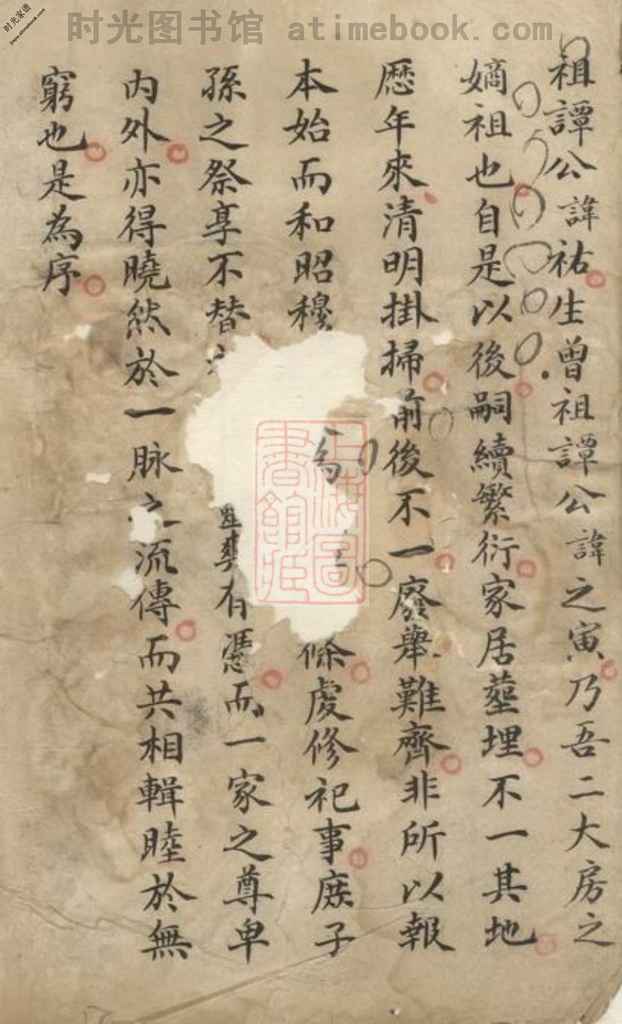 时光图书馆 atimebook.com
时光家谱
www.atimebook.com
祖譚公諱祐生曾祖譚公諱之寅乃吾二大房之
嫡祖也自是以後嗣續繁衍家居塟埋不一其地
歷年來清明掛掃前後不一廢舉難齊非所以報
本始而和昭穆 條處修祀事庶子
孫之祭享不替 有憑而一家之尊卑
內外亦得曉然於一脉之流傳而共相輯睦於無
窮也是為序
上海圖
書館藏